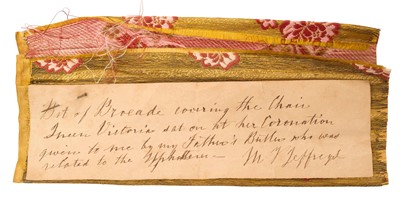 Bit of Brocade covering the Chair
Queen Victoria sat on at her Coronation
given to me by my Father's Butler who was
related to the Upholsterer — M